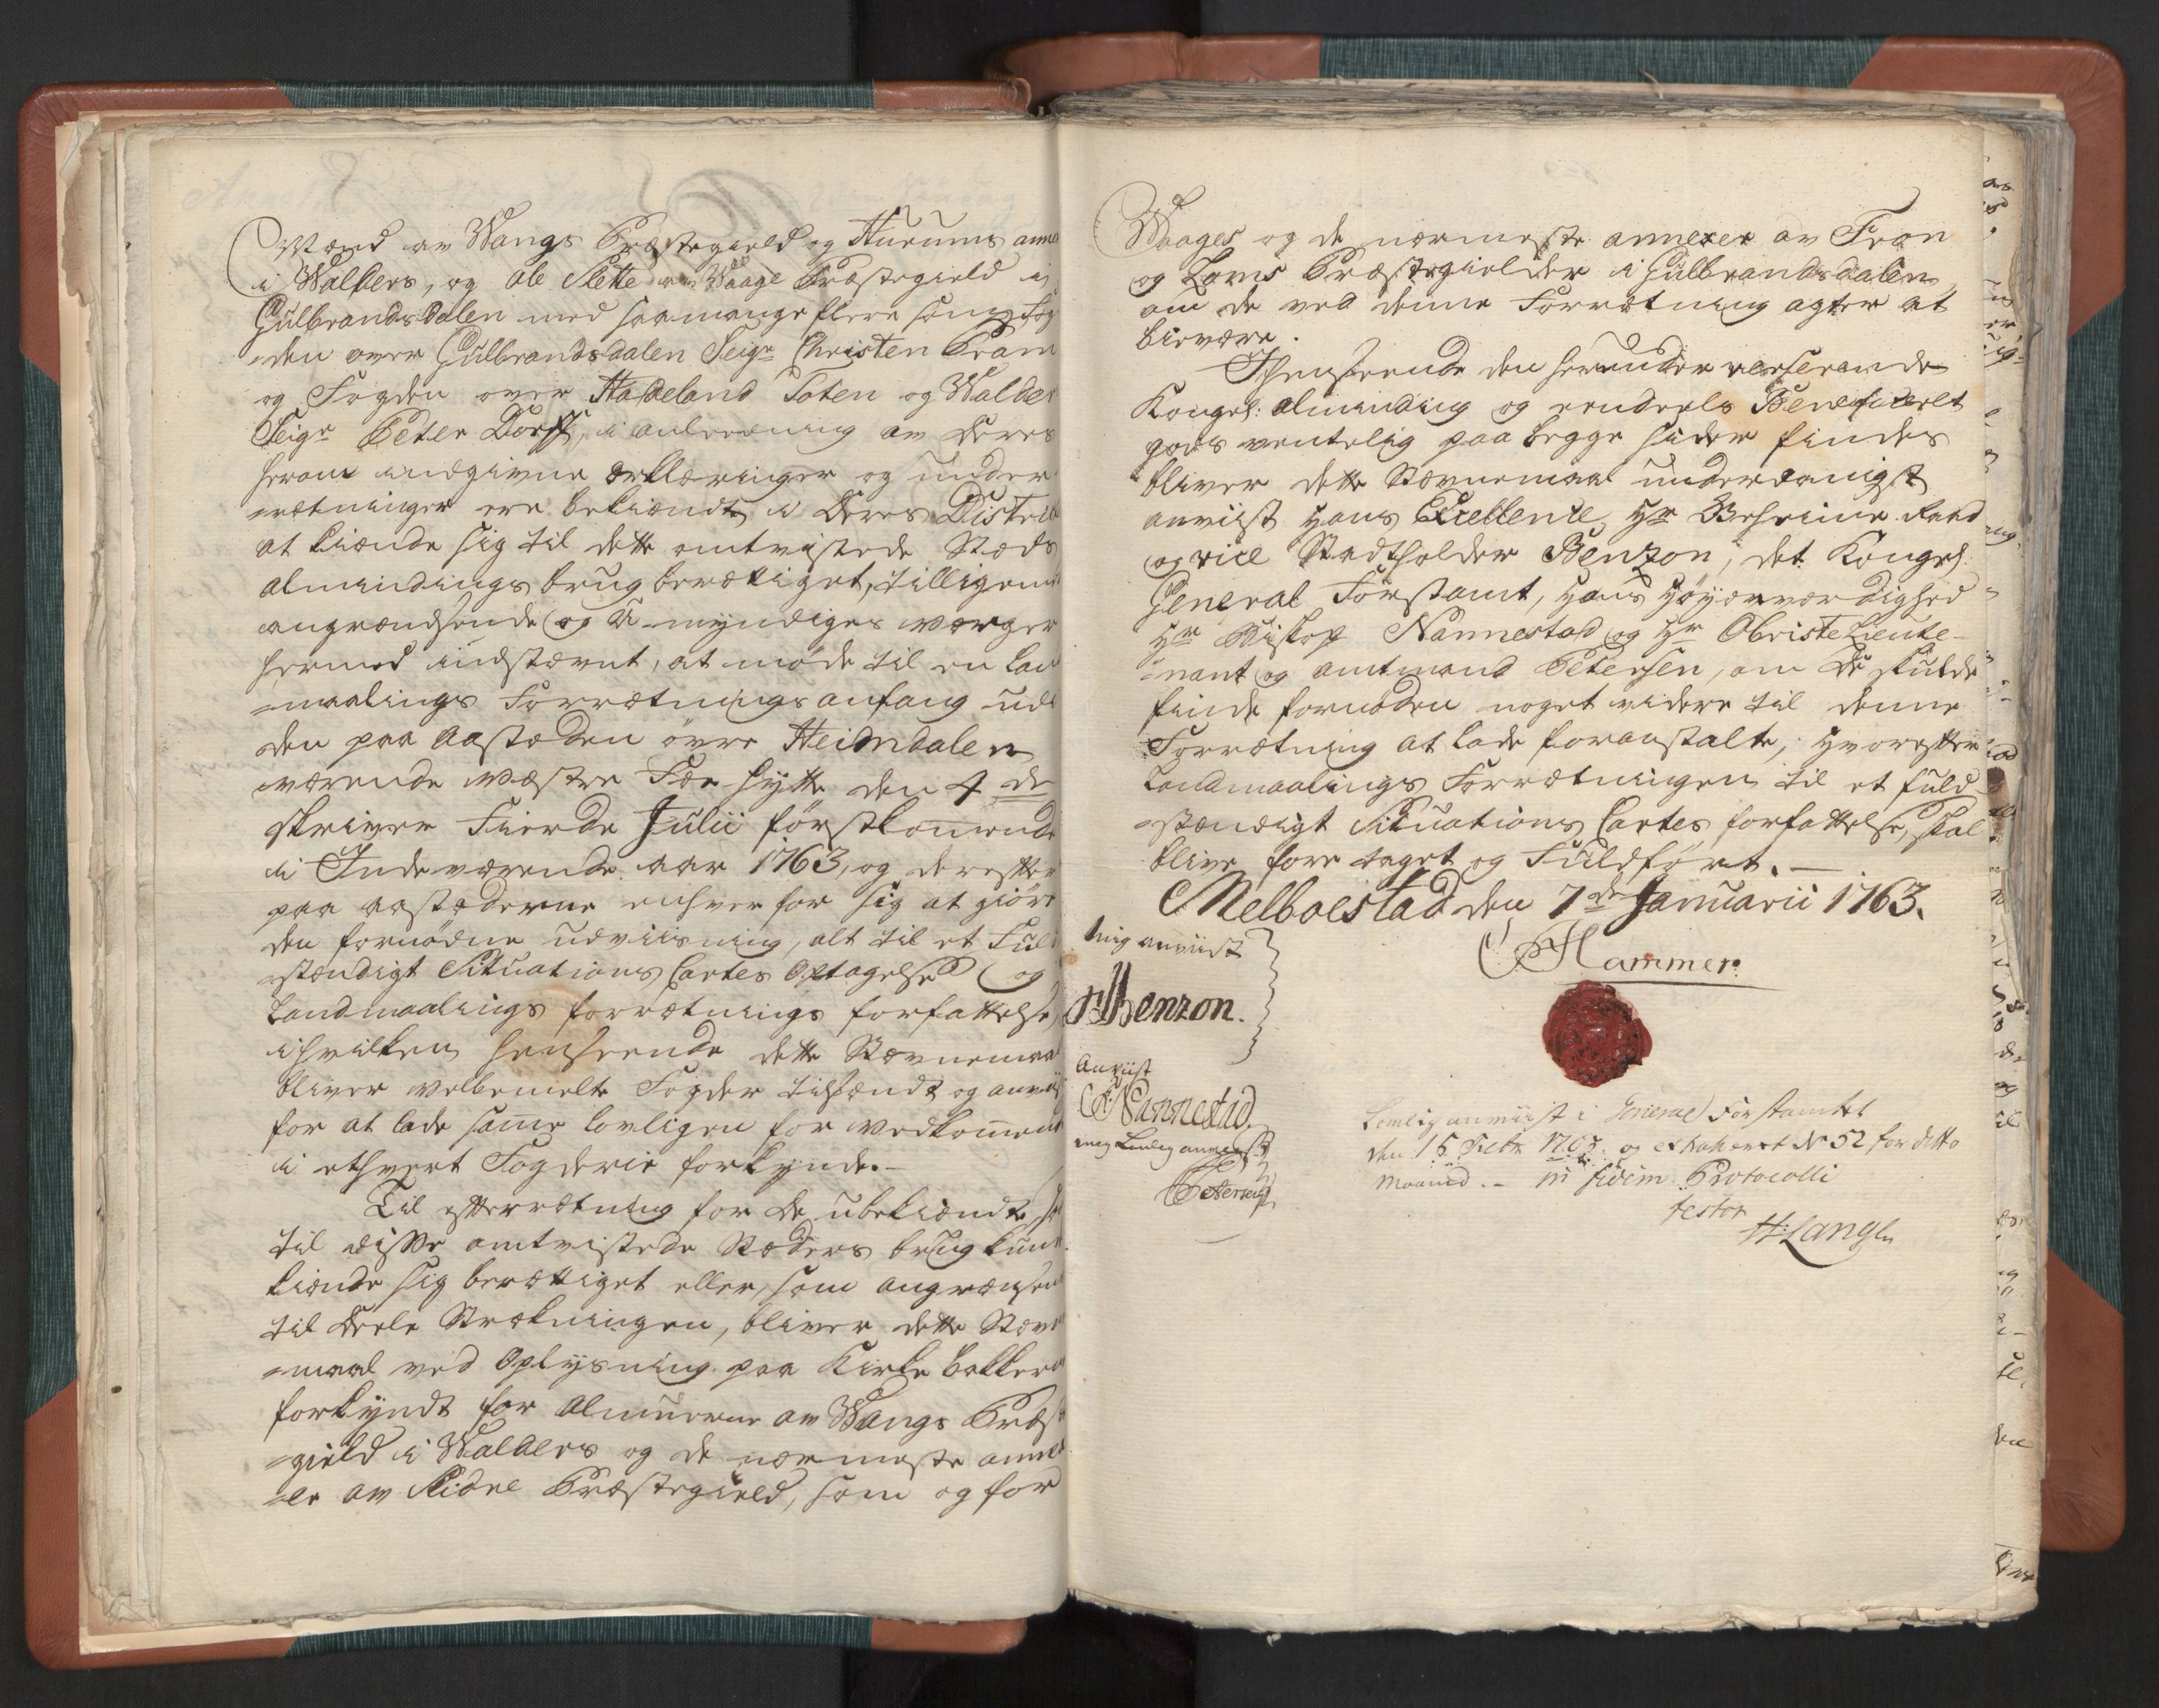 Mænd av Wangs Præstegield og Hurums annex
i Walders, og Ole Slette av Waage Præstegield i
Gulbrandsdalen med saa mange flere som Fog
=den over Gulbrandsdalen Seigr Christen Pram
og Fogden over Hadeland Toten og Walders
Seigr Peter Dorff, i anledning av Deres
herom indgivne Erklæringer og under
=rætninger ere bekiændt i Deres District
at kiænde sig til dette omtvistede Stæds
almindings brug berættiget, tilligemed
angrændsende og u-myndiges værger
hermed indstævnt, at møde til en Land
=maalings Forrætnings anfang udi
den paa Aastæden øvre Heimdalen
værende Wæstre Fæe hytte den 4de
skriver Fierde Julii førstkommende
i Indeværende aar 1763, og derefter
paa aastæderne enhver for sig at giøre
den fornødne udviisning, alt til et Fuld
=stændigt Situations Cartes Optagelse og
Landmaalings forrætnings forfattelse,
i hvilken henseende dette Stævnemaal
bliver velbemelte Fogder tilsændt og anviist
for at lade samme lovligen for Vedkommende
i ethvert Fogderie forkynde.-
Til efterrætning for de ubekiændte, som
til disse omtvistede Stæders brug kunde
kiænde sig berættiget eller, som angrænsende
til Deele Strækningen, bliver dette Stævne
=maal ved Oplysning paa Kirke bakkerne
forkyndt for Almuerne av Wangs Præste
=gield i Walders og de nærmeste annex
=er av Slidre Præstegield, som og for
Waages og de nærmeste annexer av Fron
og Loms Præstegielder i Gulbrandsdalen,
om de ved denne Forrætning agter at
bievære.
I henseende den herunder verserende
Kongel: Alminding og eendeels Beneficeret
gods ventelig paa begge sider findes
bliver dette Stævnemaal underdanigst
anviist Hans Excellence Hr Geheime Raad
og vice Stadtholder Benzon, det Kongel:
General Forstamt, Hans Høyærværdighed
Hr Biskop Nannestad og Hr Obriste Lieute-
=nant og amtmand Petersen, om De skulde
finde fornøden noget videre til denne
Forrætning at lade foranstalte, hvorefter
Landmaalings Forrætningen til et fuld-
=stændigt Situations Cartes forfattelse, skal
blive fore taget og Fuldført.-
Melboestad den 7de Januarii 1763.
Hammer.
Mig anviist
Benzon.
Anviist
F: Nannestad.
mig Lovlig anviist
Petersen
Lovlig anviist i General Forstamtet
den 15 Febr 1763. og extraheret No 52 for ditto
Maaned.- in fidem Protocolli
testor
H: Lange